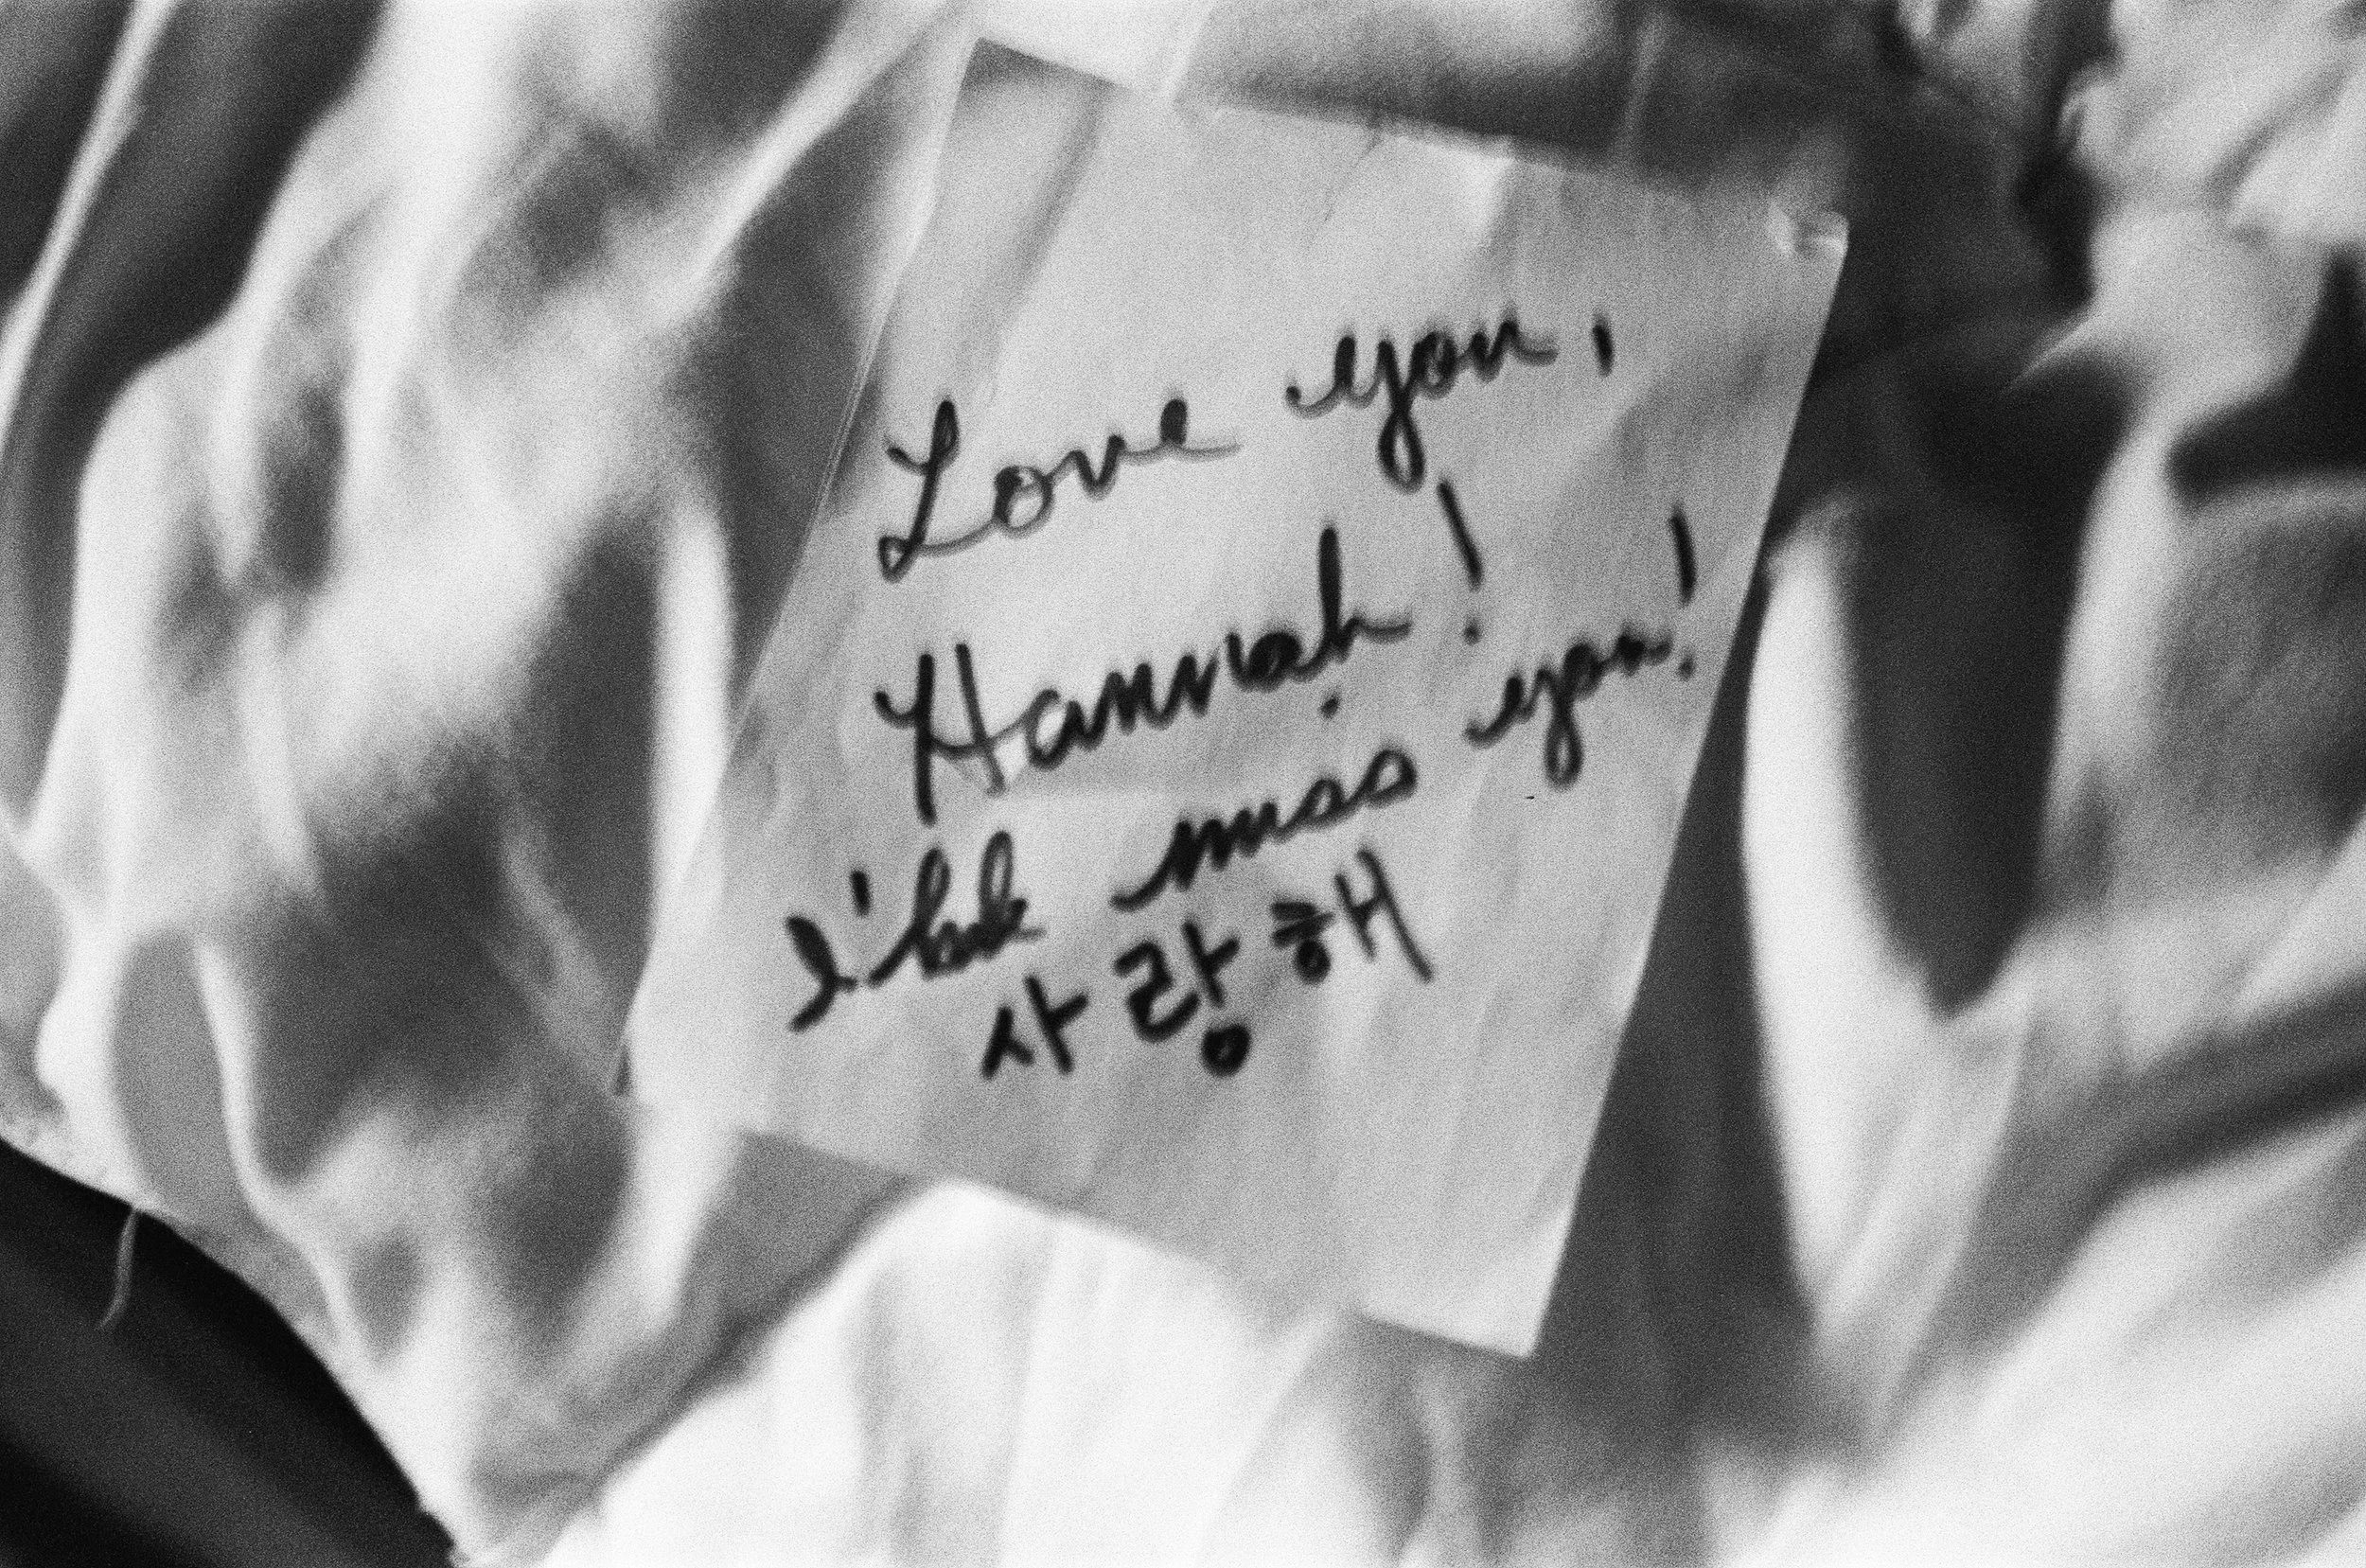 Love you,
Hannah!
I'll miss you!
사랑해